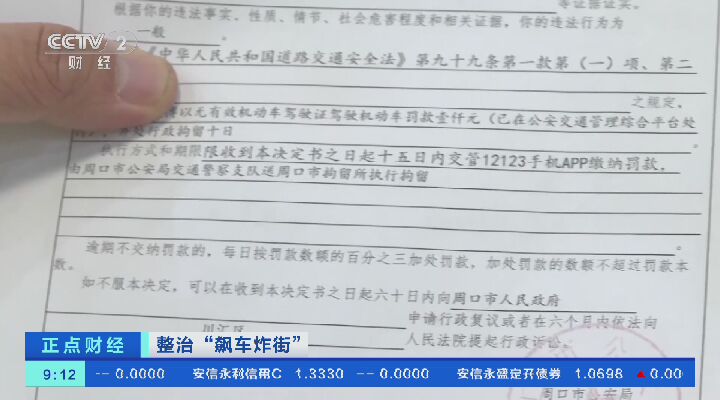 等证据证实。
根据你的违法事实、性质、情节、社会危害程度和相关证据，你的违法行为为
一般
CCTV 2
财经
《中华人民共和国道路交通安全法》第九十九条第一款第（一）项、第二
之规定，
以无有效机动车驾驶证驾驶机动车罚款壹仟元（已在公安交通管理综合平台处
行政拘留十日
执行方式和期限限收到本决定书之日起十五日内交管12123手机APP缴纳罚款，
由周口市公安局交通警察支队送周口市拘留所执行拘留
。
逾期不交纳罚款的，每日按罚款数额的百分之三加处罚款，加处罚款的数额不超过罚款本
数。
如不服本决定，可以在收到本决定书之日起六十日内向周口市人民政府
申请行政复议或者在六个月内依法向
川汇区
人民法院提起行政诉讼。
正点财经 整治“飙车炸街”
9:12 -- 0.0000 安信永利信用C 1.3330 -- 0.0000 安信永盛定开债券 1.0698 ▲0.00
周口市公安局